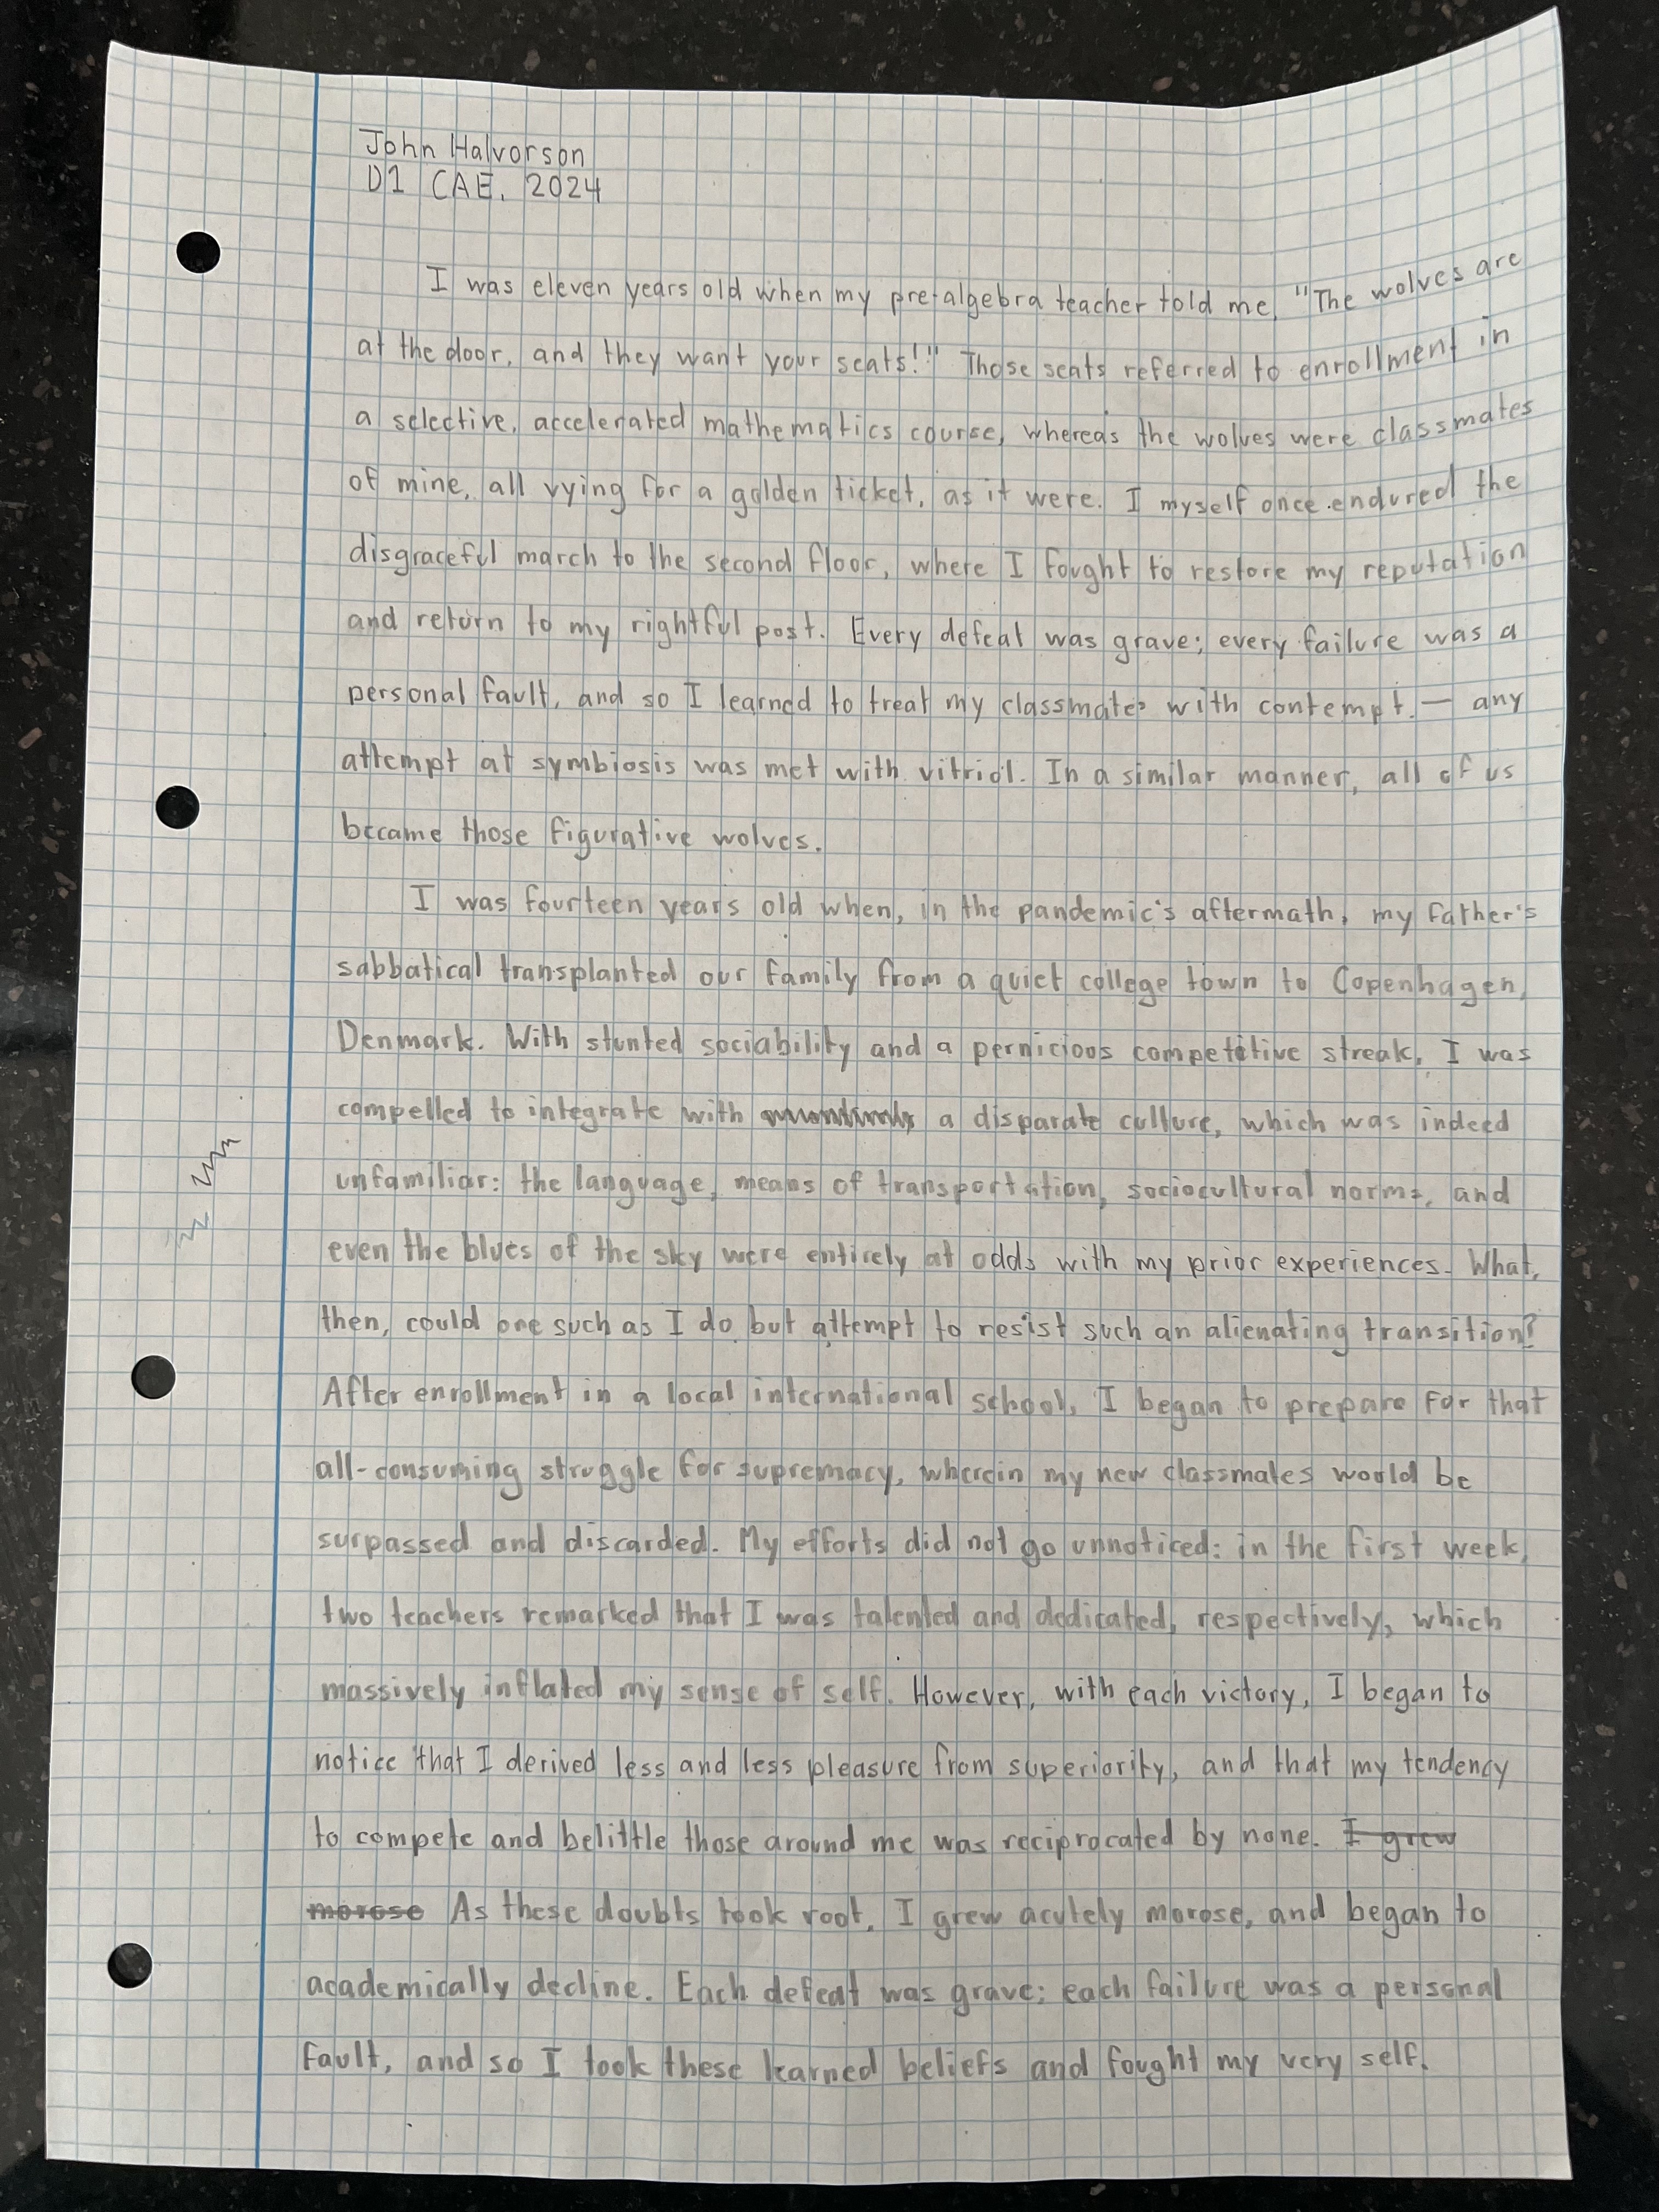 John Halvorson
D1 CAE, 2024
I was eleven years old when my pre-algebra teacher told me, "The wolves are
at the door, and they want your seats!" Those seats referred to enrollment in
a selective, accelerated mathematics course, whereas the wolves were classmates
of mine, all vying for a golden ticket, as it were. I myself once endured the
disgraceful march to the second floor, where I fought to restore my reputation
and return to my rightful post. Every defeat was grave; every failure was a
personal fault, and so I learned to treat my classmates with contempt. — any
attempt at symbiosis was met with vitriol. In a similar manner, all of us
became those figurative wolves.
I was fourteen years old when, in the pandemic's aftermath, my father's
sabbatical transplanted our family from a quiet college town to Copenhagen,
Denmark. With stunted sociability and a pernicious competitive streak, I was
compelled to integrate with a disparate culture, which was indeed
unfamiliar: the language, means of transportation, sociocultural norms, and
even the blues of the sky were entirely at odds with my prior experiences. What,
then, could one such as I do but attempt to resist such an alienating transition?
After enrollment in a local international school, I began to prepare for that
all-consuming struggle for supremacy, wherein my new classmates would be
surpassed and discarded. My efforts did not go unnoticed: in the first week,
two teachers remarked that I was talented and dedicated, respectively, which
massively inflated my sense of self. However, with each victory, I began to
notice that I derived less and less pleasure from superiority, and that my tendency
to compete and belittle those around me was reciprocated by none. I grew
morose As these doubts took root, I grew acutely morose, and began to
academically decline. Each defeat was grave; each failure was a personal
fault, and so I took these learned beliefs and fought my very self.